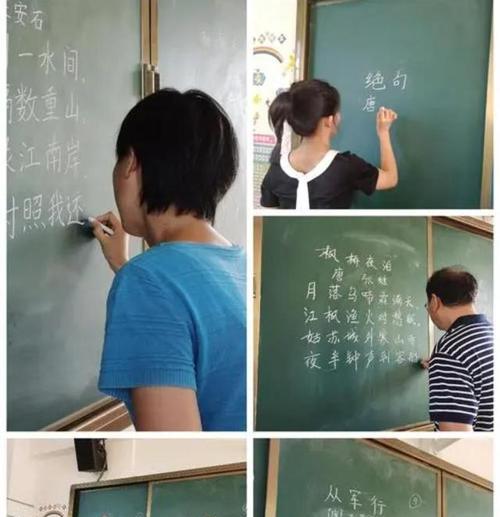 安石
一水间,
数重山,
江南岸,
照我还
绝句
唐
枫桥夜泊
唐 张继
月落乌啼霜满天,
江枫渔火对愁眠,
姑苏城外寒山寺
夜半钟声到客船
从军行